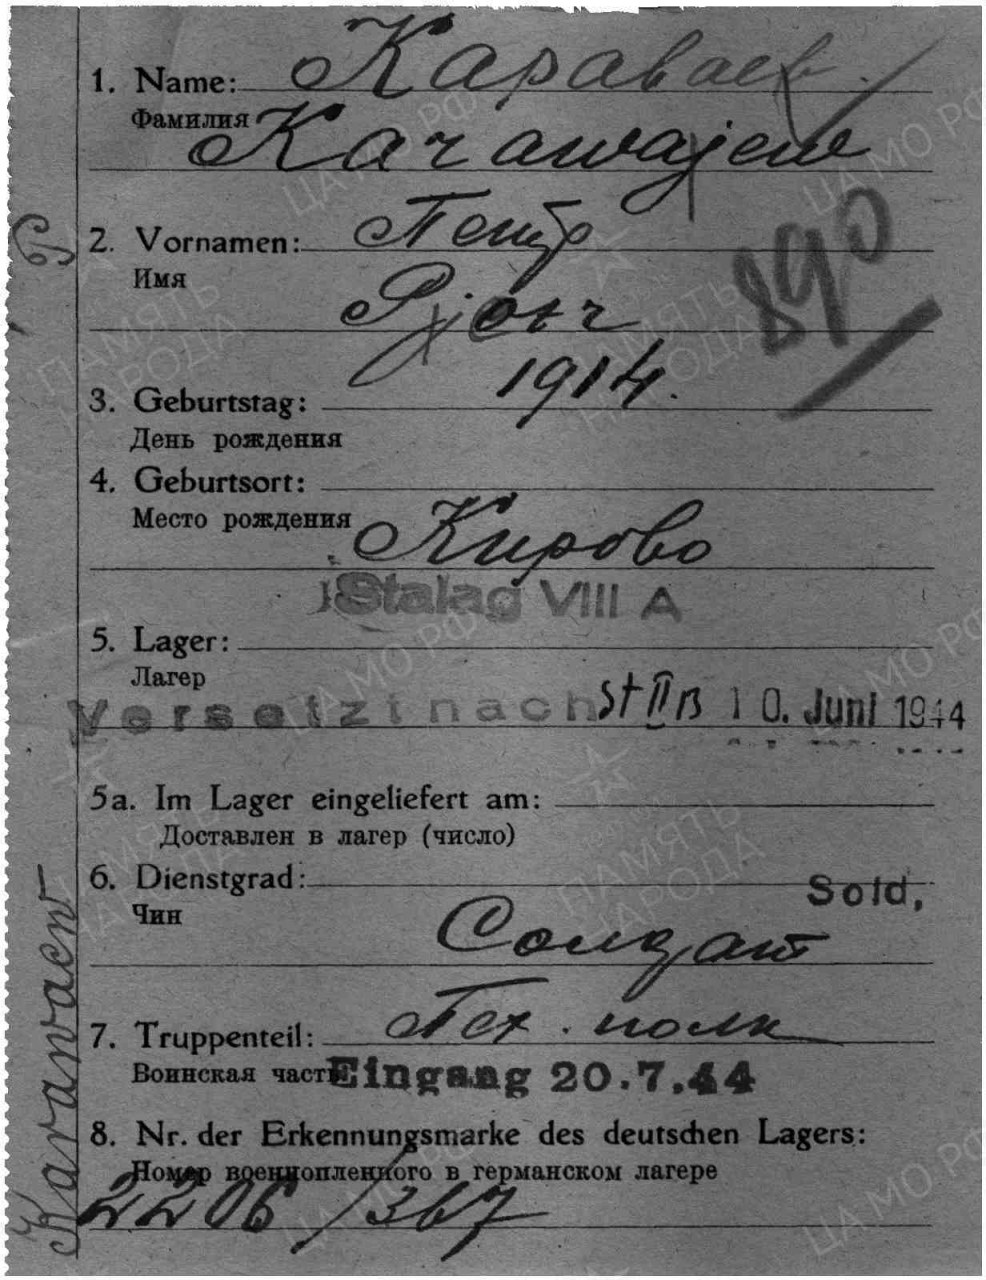 1. Name: Караваев.
Фамилия Karawajew
890
2. Vornamen: Петр
Имя Pjotr
1914.
3. Geburtstag:
День рождения
4. Geburtsort:
Место рождения Кирово
Stalag VIII A
5. Lager:
Лагер
Versetzt nach St II B 10. Juni 1944
5a. Im Lager eingeliefert am:
Доставлен в лагер (число)
6. Dienstgrad: Sold,
Чин Солдат
7. Truppenteil: Пех. полк
Воинская часть Eingang 20.7.44
8. Nr. der Erkennungsmarke des deutschen Lagers:
Номер военнопленного в германском лагере
2206/367
Karawaew
ЦА МО РФ
ПАМЯТЬ НАРОДА